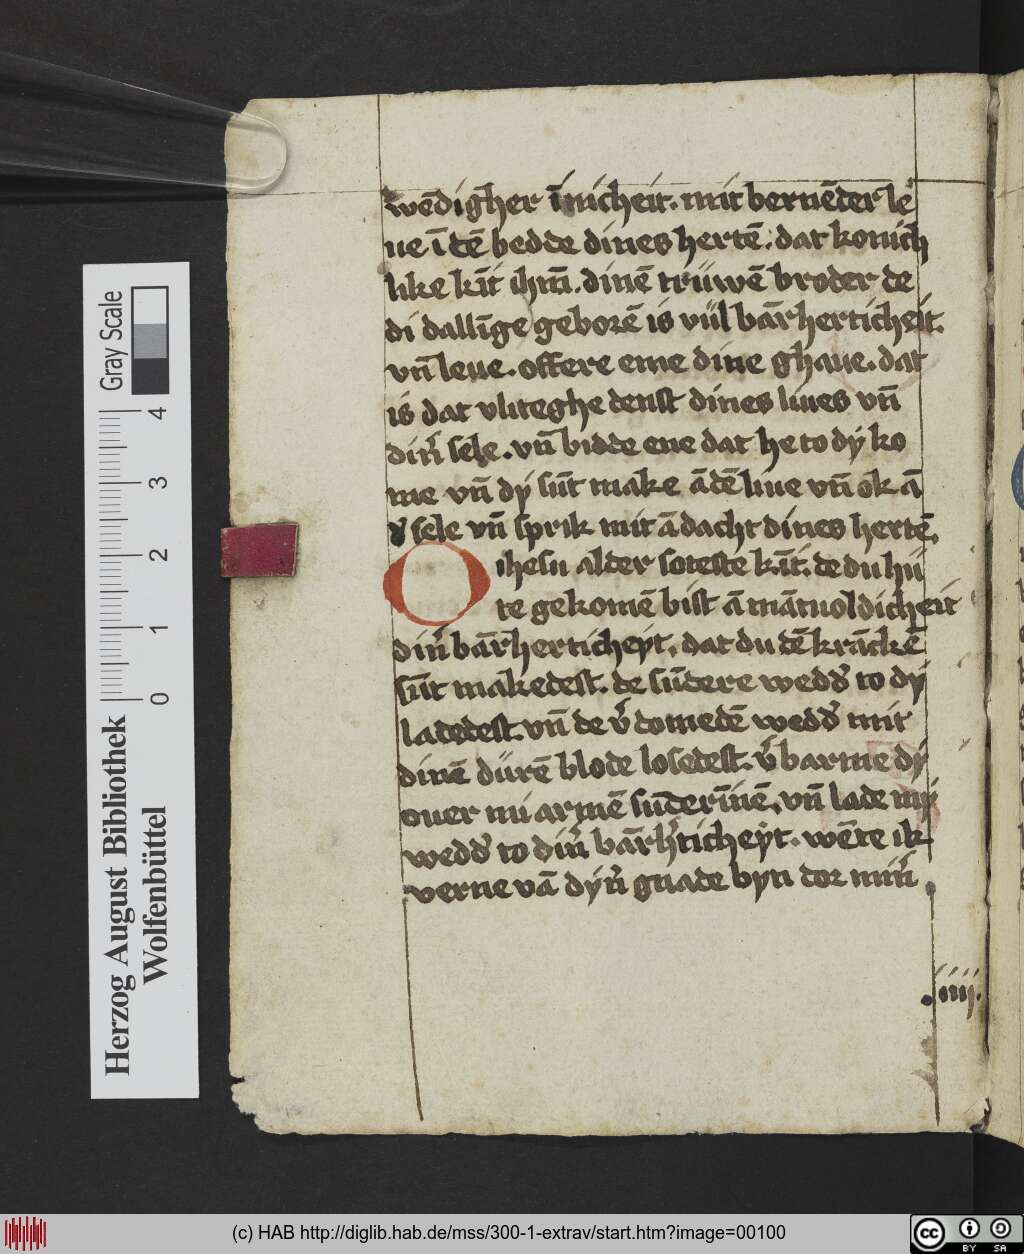 wēdigher īnicheit. mit bernēder le
ue ī dē bedde dines hertē. dat konich
like kīt ihm̄. dinē trüwē broder de
di dallīge geborē is vül bārherticheit.
vn̄ leue. offere eme dine ghaue. dat
is dat vliteghe denst dines liues vn̄
din̄ sele. vn̄ bidde ene dat he to dÿ ko
me vn̄ dÿ sūt make ā dē liue vn̄ ok ā
d' sele vn̄ sprik mit ādacht dines hertē.
O ihesu alder soteste kīt. de du hü
te gekomē bist ā māuoldicheit
din̄ bārherticheyt. dat du dē krāckē
sūt makedest. de sūdere wedd' to dÿ
ladedest. vn̄ de v'domedē wedd' mit
dinē dürē blode losedest. v'barme dÿ
ouer mi armē sūderīnē. vn̄ lade mÿ
wedd' to din̄ bārh'ticheyt. wēte ik
verne vā dyn̄ gnade byn dor min̄
.iiij.
Gray Scale
0 1 2 3 4
Herzog August Bibliothek
Wolfenbüttel
(c) HAB http://diglib.hab.de/mss/300-1-extrav/start.htm?image=00100
cc BY SA